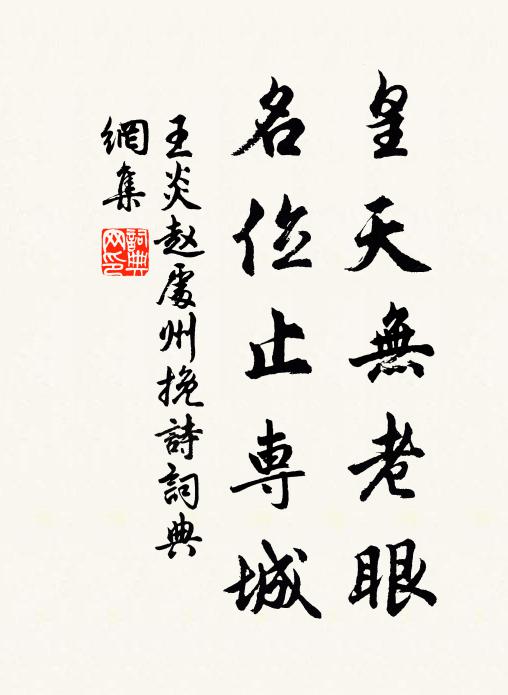 皇天無老眼
名位止専城
王炎赵處州挽詩詞典
網集
詞典網印